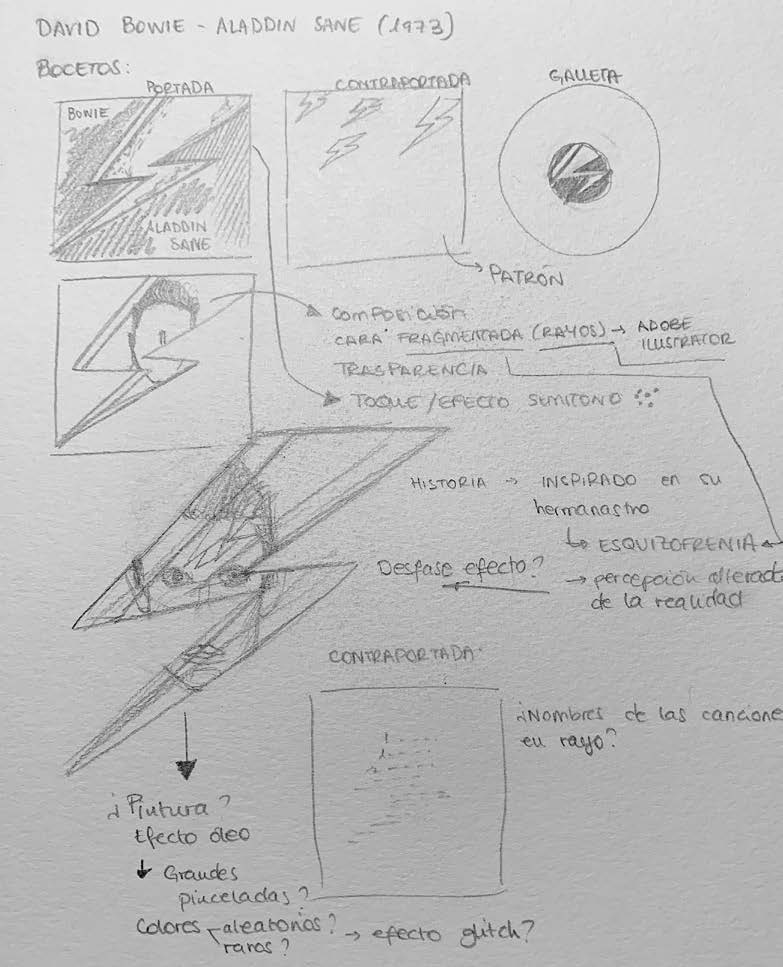 DAVID BOWIE - ALADDIN SANE (1973)
BOCETOS:
PORTADA
CONTRAPORTADA
GALLETA
BOWIE
ALADDIN
SANE
PATRÓN
COMPOSICIÓN
CARA FRAGMENTADA (RAYOS) → ADOBE
ILUSTRATOR
TRASPARENCIA
TOQUE/EFECTO SEMITONO
HISTORIA → INSPIRADO en su
hermanastro
↳ ESQUIZOFRENIA
Desfase efecto?
→ percepción alterada
de la realidad
CONTRAPORTADA:
¿Nombres de las cancione
en rayo?
¿Pintura?
Efecto óleo
↓ Grandes
pinceladas?
Colores aleatorios? → efecto glitch?
raros?